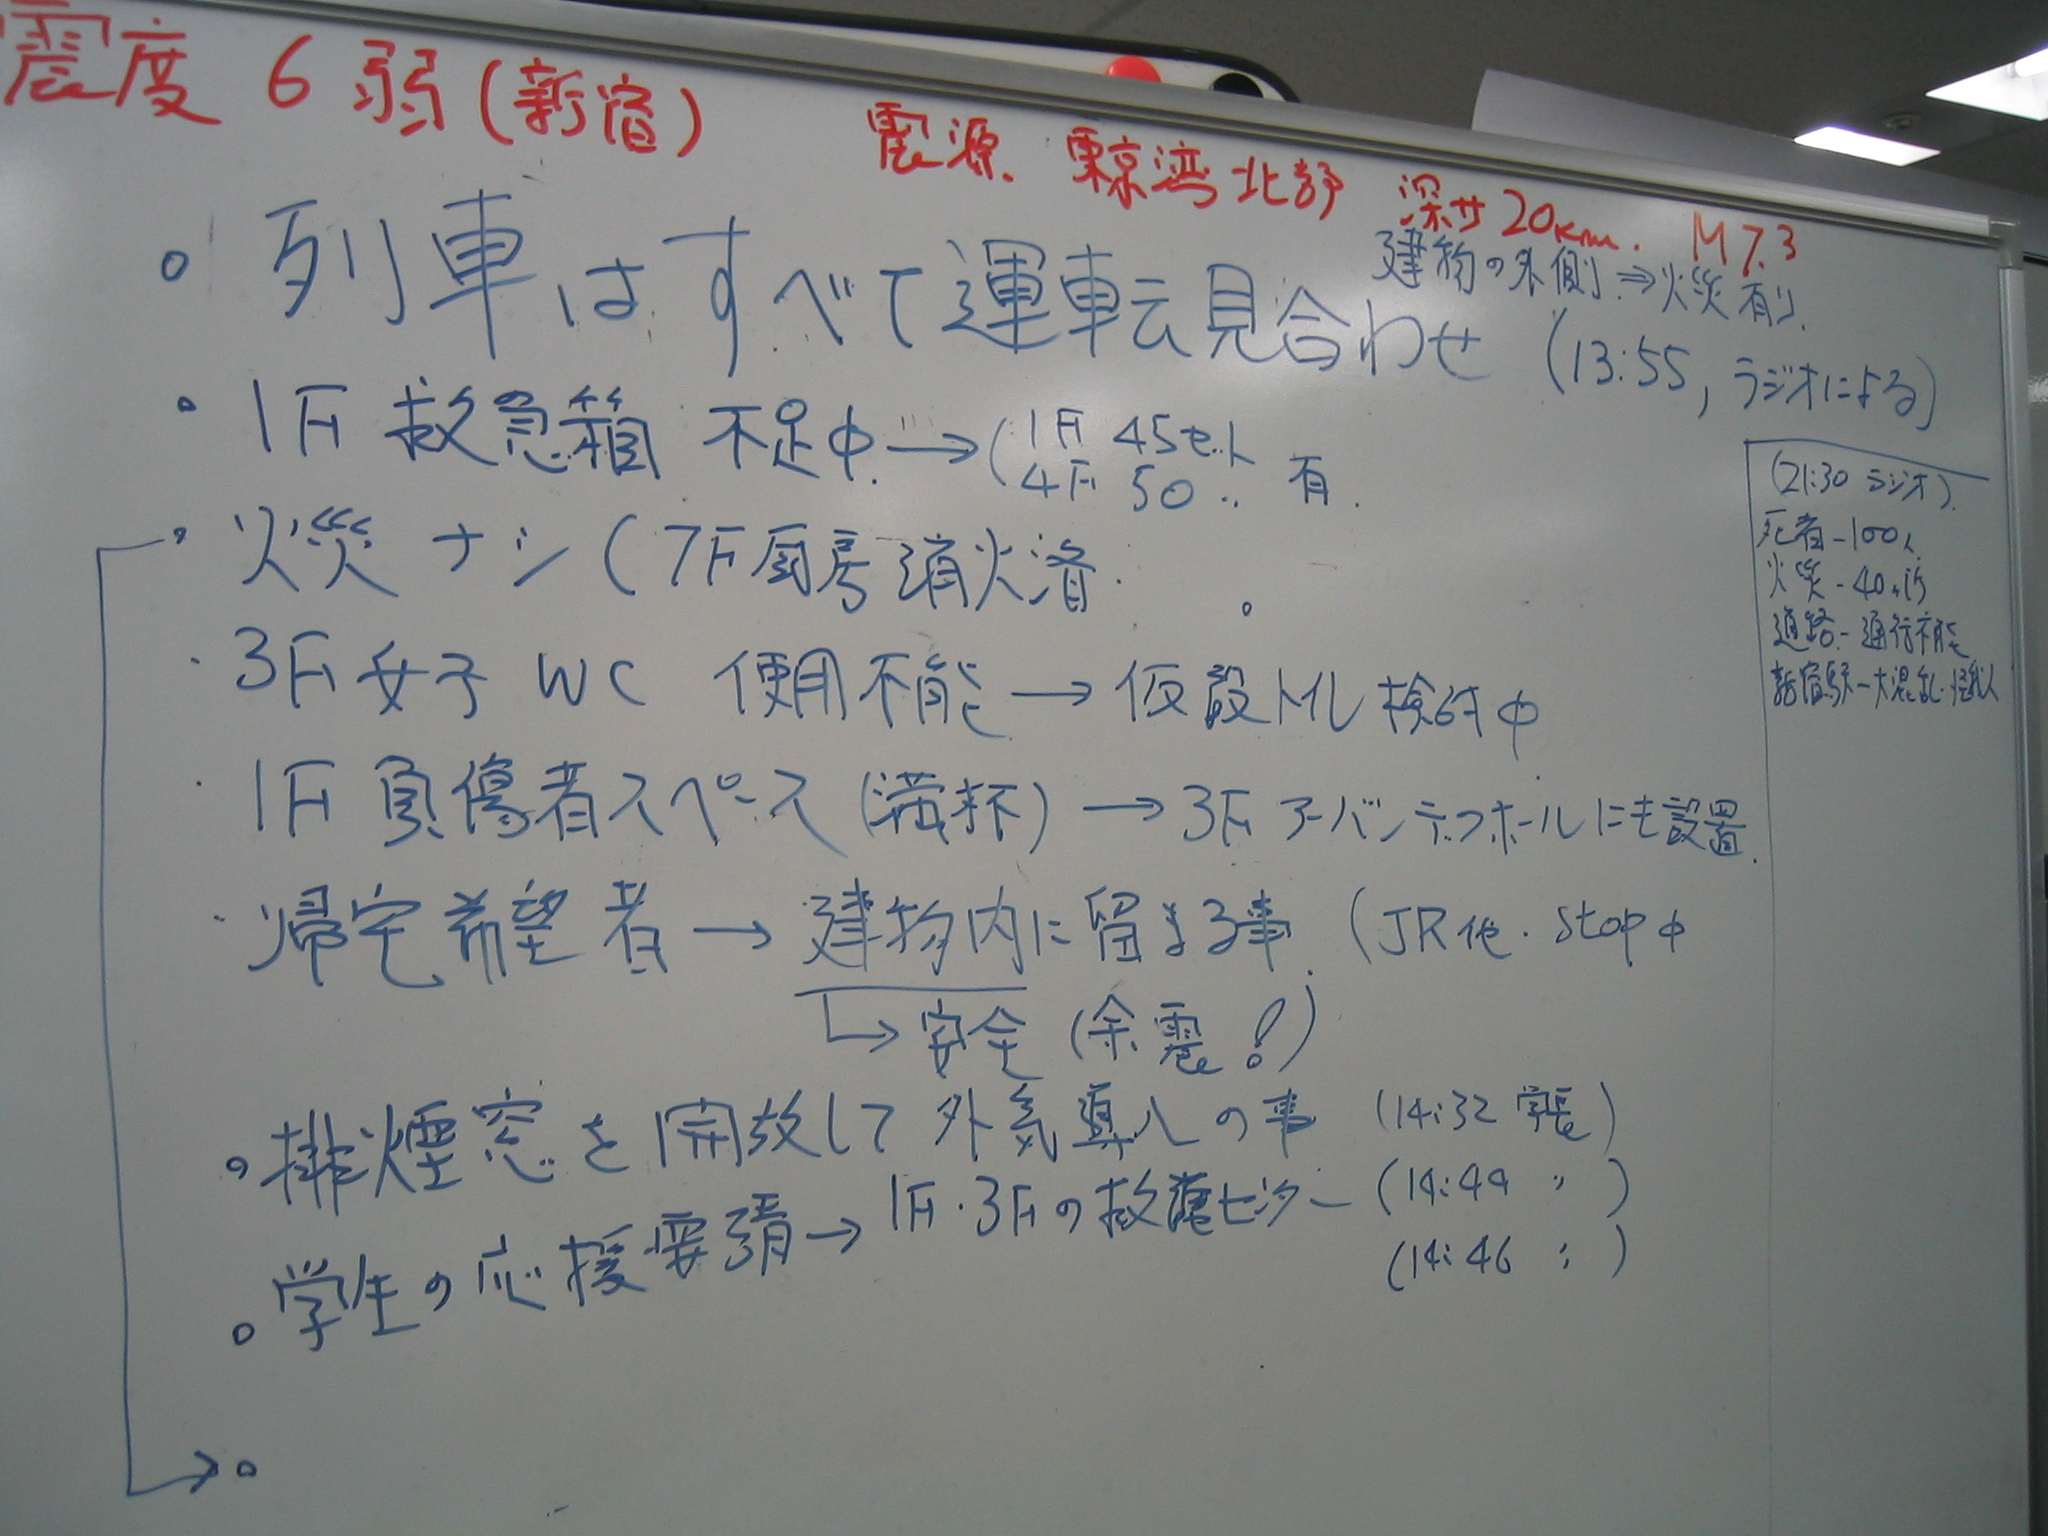 震度 6弱(新宿)
震源. 東京湾北部 深サ20km. M7.3
建物の外側⇒火災有り.
。列車はすべて運転見合わせ (13:55, ラジオによる)
・1F 救急箱 不足中. → (1F 45セット
4F 50 〃 有.
・火災ナシ (7F厨房消火済.
・3F女子WC 使用不能→仮設トイレ検討中
・1F 負傷者スペース (満杯) → 3F アーバンテックホールにも設置.
・帰宅希望者→建物内に留まる事. (JR他. stop中
↳安全 (余震!)
。排煙窓を開放して外気導入の事 (14:32 学長)
。学生の応援要請→1F・3Fの救護センター (14:44 〃 )
(14:46 〃 )
(21:30 ラジオ).
死者-100人
火災-40ヵ所
道路-通行不能
新宿駅-大混乱・怪我人